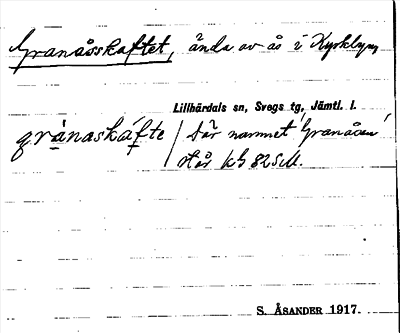 Granåsskaftet, ända av ås i Kyrkbyn,
Lillhärdals sn, Svegs tg, Jämtl. l.
gránaskáfte / där namnet 'Granåsen'
står kG 82 SM.
S. ÅSANDER 1917.